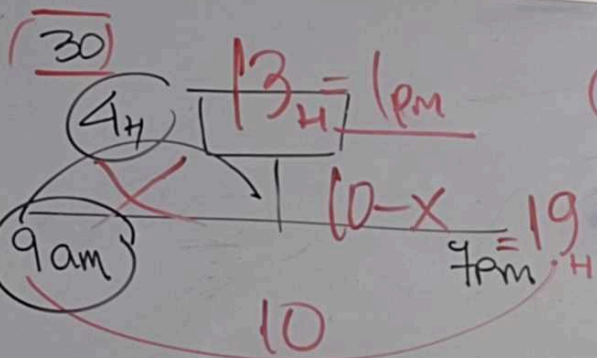 (30)
4H 13H = 1pm
X 10-x
9am 7pm = 19.H
10